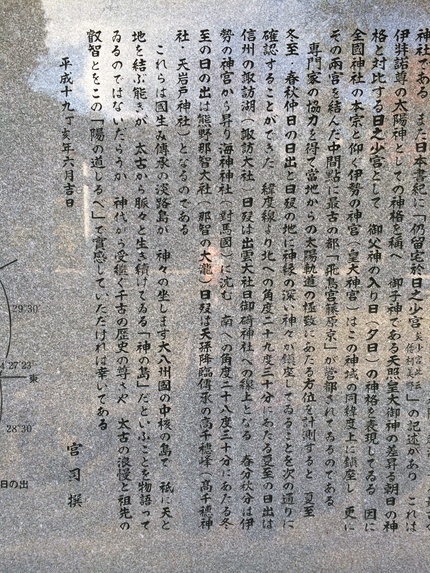 神社である　また日本書紀に「仍留宅於日之少宮
」の記述があり　これは
伊弉諾尊の太陽神としての神格を稱へ　御子神である天照皇大御神の差昇る朝日の神
格と対比する日之少宮として　御父神の入り日（夕日）の神格を表現してゐる　因に
全國神社の本宗と仰ぐ伊勢の神宮（皇大神宮）はこの神域の同緯度上に鎮座し　更に
その両宮を結んだ中間點に最古の都「飛鳥宮藤原京」が営都されてゐるのである
専門家の協力を得て當地からの太陽軌道の極致にあたる方位を計測すると　夏至
冬至　春秋仲日の日出と日歿の地に神縁の深い神々が鎮座してゐることを次の通りに
確認することができた　緯度線より北への角度二十九度三十分にあたる夏至の日出は
信州の諏訪湖（諏訪大社）日歿は出雲大社日御碕神社への線上となる　春分秋分は伊
勢の神宮から昇り海神神社（對馬國）に沈む　南への角度二十八度三十分にあたる冬
至の日の出は熊野那智大社（那智の大瀧）日歿は天孫降臨傳承の高千穂峰（高千穂神
社・天岩戸神社）となるのである
これらは國生み傳承の淡路島が　神々の坐します大八州國の中核の島で　祇に天と
地を結ぶ能きが　太古から脈々と生き續けてゐる「神の島」だといふことを物語って
ゐるのではないだらうか　神代から受継ぐ千古の歴史の尊さや　太古の浪漫と祖先の
叡智とをこの「陽の道しるべ」で實感していただければ幸いである
平成十九丁亥年六月吉日
宮司　撰
29°30′
27°23′
東
28°30′
日の出